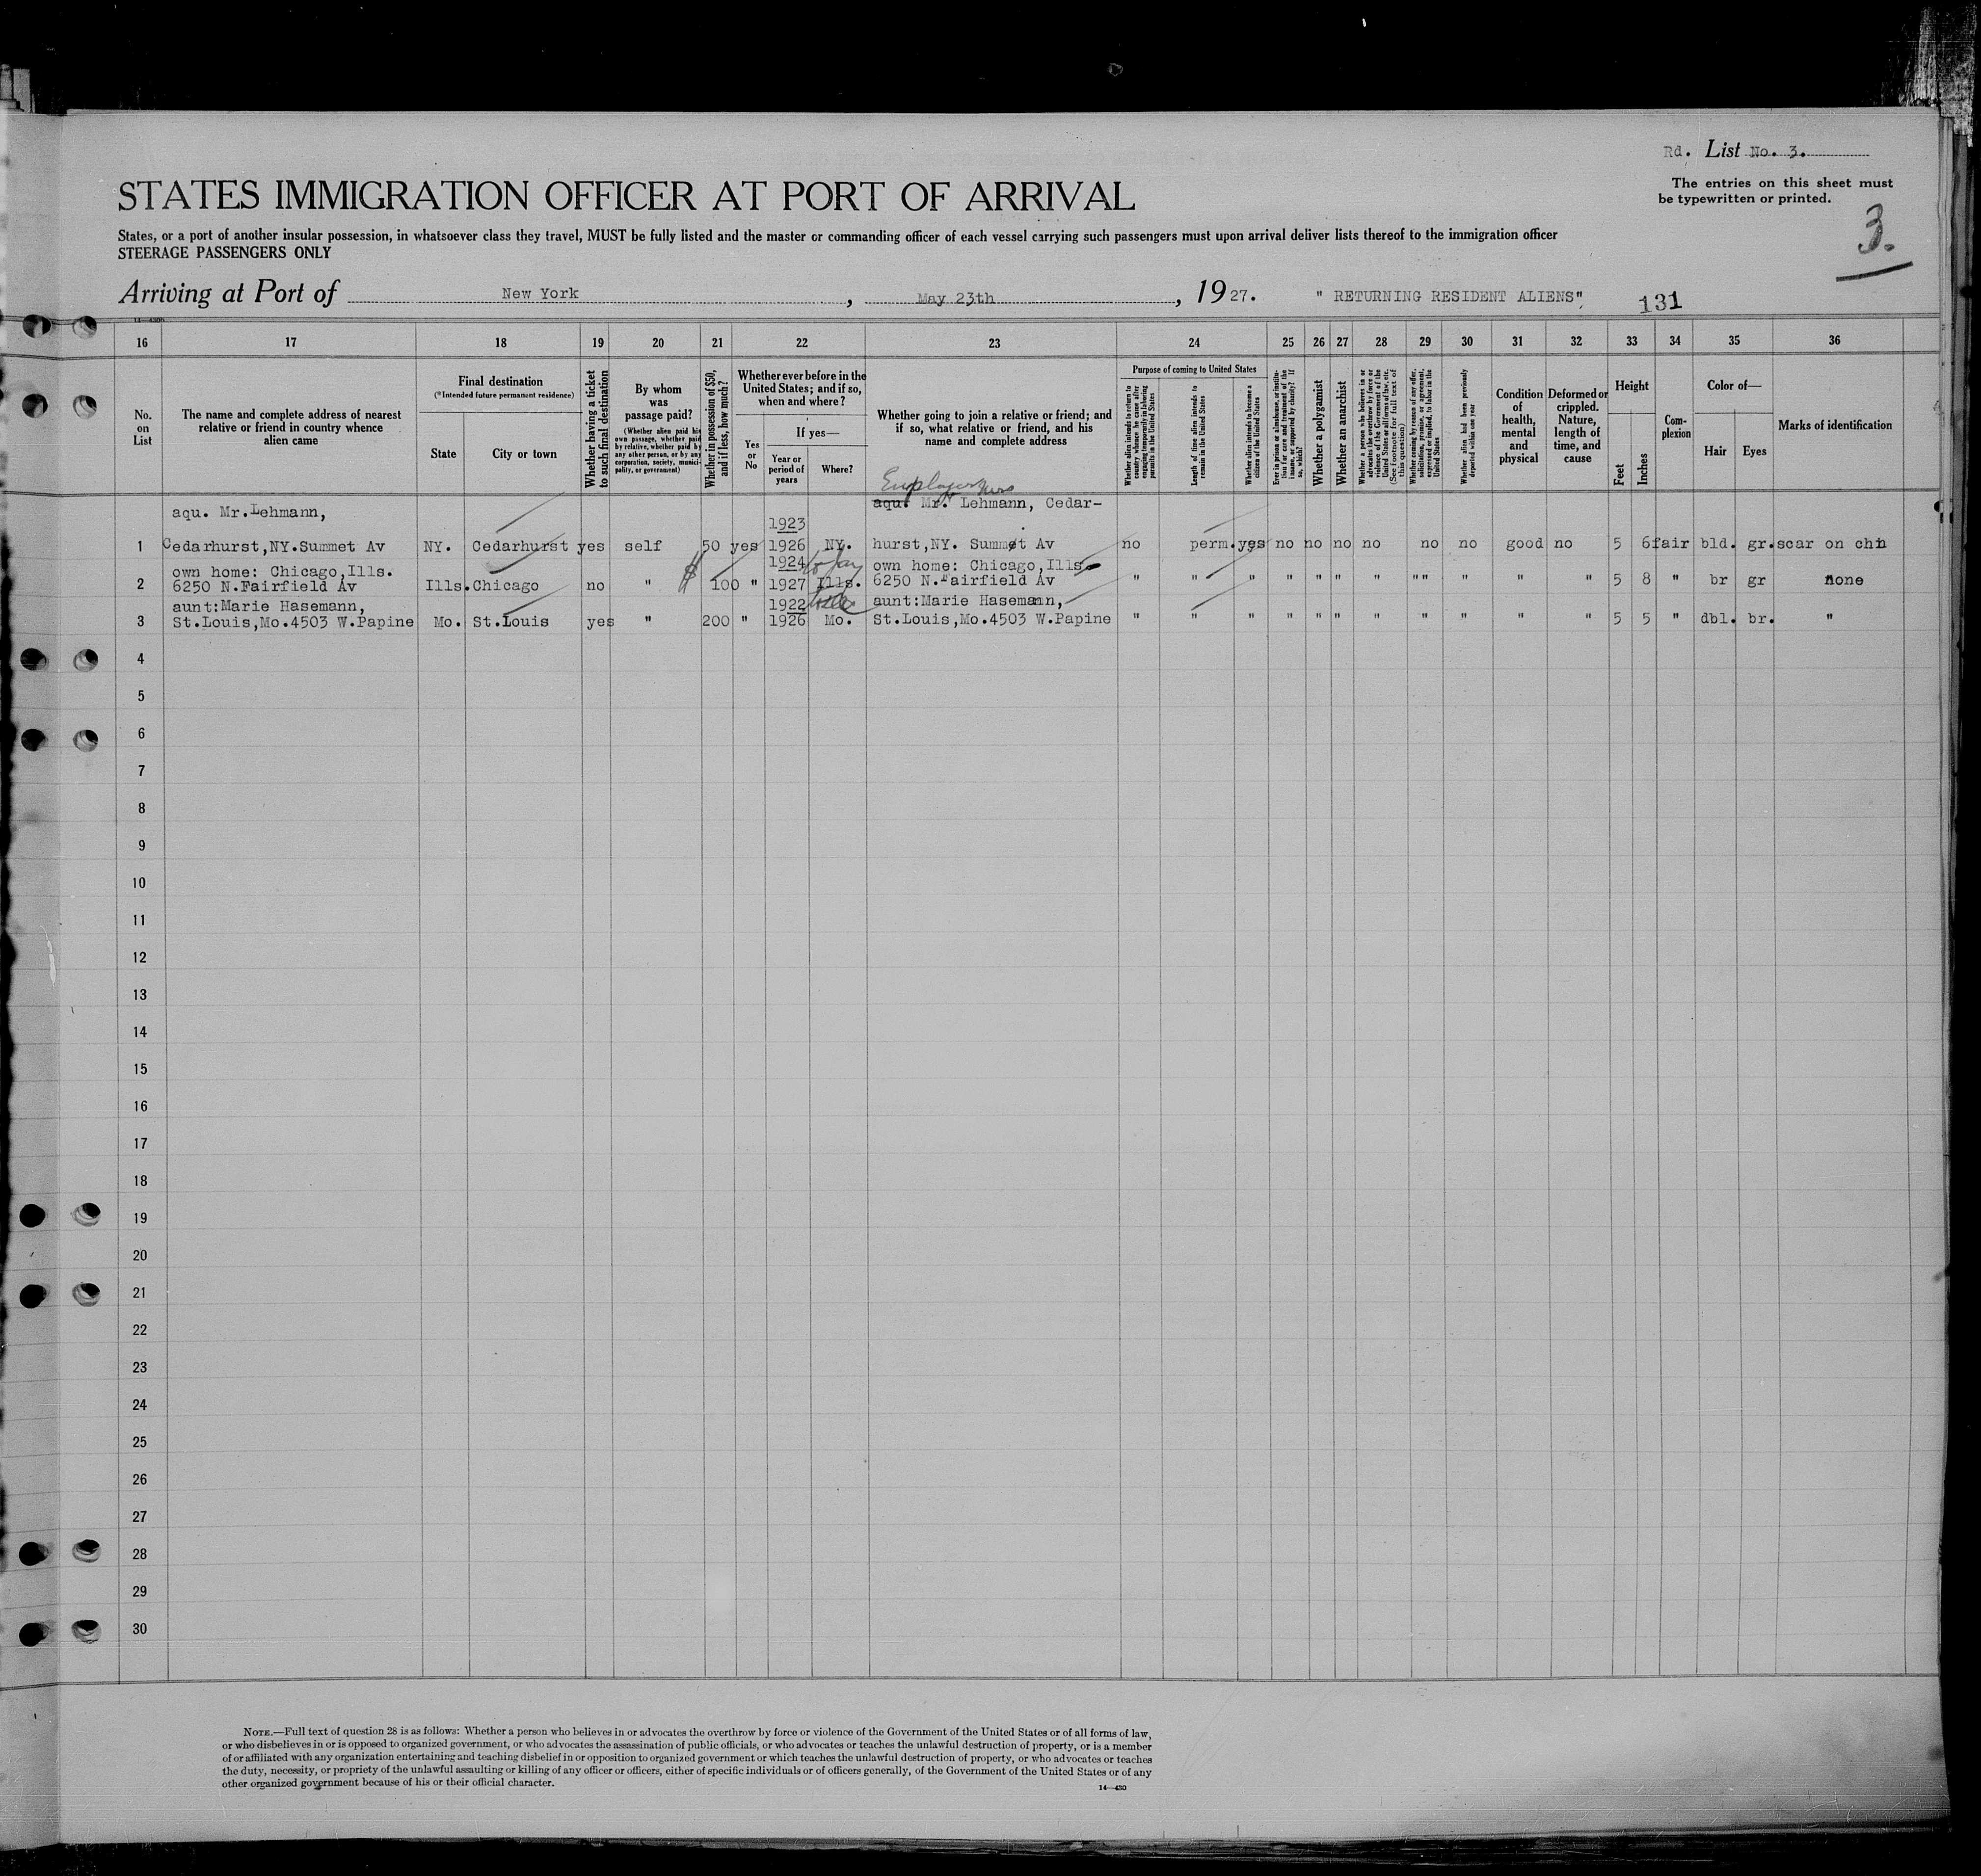 Rd. List No. 3.
STATES IMMIGRATION OFFICER AT PORT OF ARRIVAL
The entries on this sheet must
be typewritten or printed.
3.
States, or a port of another insular possession, in whatsoever class they travel, MUST be fully listed and the master or commanding officer of each vessel carrying such passengers must upon arrival deliver lists thereof to the immigration officer
STEERAGE PASSENGERS ONLY
Arriving at Port of New York, May 23th, 1927. " RETURNING RESIDENT ALIENS", 131
16 17 18 19 20 21 22 23 24 25 26 27 28 29 30 31 32 33 34 35 36
No. on List
The name and complete address of nearest
relative or friend in country whence
alien came
Final destination
(*Intended future permanent residence)
State
City or town
Whether having a ticket
to such final destination
By whom
was
passage paid?
(Whether alien paid his
own passage, whether paid
by relative, whether paid by
any other person, or by any
corporation, society, munici-
pality, or government)
Whether in possession of $50,
and if less, how much?
Whether ever before in the
United States; and if so,
when and where?
Yes or No
If yes—
Year or
period of
years
Where?
Whether going to join a relative or friend; and
if so, what relative or friend, and his
name and complete address
Purpose of coming to United States
Whether alien intends to return to
country whence he came after
engaging temporarily in laboring
pursuits in the United States
Length of time alien intends to
remain in the United States
Whether alien intends to become a
citizen of the United States
Ever in prison or almshouse, or institu-
tion for care and treatment of the
insane, or supported by charity? If
so, which?
Whether a polygamist
Whether an anarchist
Whether a person who believes in or
advocates the overthrow by force or
violence of the Government of the
United States or all forms of law, etc.
(See footnote for full text of
this question)
Whether coming by reason of any offer,
solicitation, promise, or agreement,
expressed or implied, to labor in the
United States
Whether alien had been previously
deported within one year
Condition
of
health,
mental
and
physical
Deformed or
crippled.
Nature,
length of
time, and
cause
Height
Feet
Inches
Com-
plexion
Color of—
Hair
Eyes
Marks of identification
Employer Mrs
aqu. Mr.Lehmann, 1923 aqu. Mr. Lehmann, Cedar-
1 Cedarhurst,NY.Summet Av NY. Cedarhurst yes self 50 yes 1926 NY. hurst,NY. Summet Av no perm. yes no no no no no no good no 5 6 fair bld. gr. scar on chin
own home: Chicago,Ills. 1924 own home: Chicago,Ills.
2 6250 N.Fairfield Av Ills. Chicago no " $ 100 " 1927 Ills. 6250 N.Fairfield Av " " " " " " " "" " " " 5 8 " br gr none
aunt:Marie Hasemann, 1922 aunt:Marie Hasemann,
3 St.Louis,Mo.4503 W.Papine Mo. St.Louis yes " 200 " 1926 Mo. St.Louis,Mo.4503 W.Papine " " " " " " " " " " " 5 5 " dbl. br. "
4
5
6
7
8
9
10
11
12
13
14
15
16
17
18
19
20
21
22
23
24
25
26
27
28
29
30
NOTE.—Full text of question 28 is as follows: Whether a person who believes in or advocates the overthrow by force or violence of the Government of the United States or of all forms of law,
or who disbelieves in or is opposed to organized government, or who advocates the assassination of public officials, or who advocates or teaches the unlawful destruction of property, or is a member
of or affiliated with any organization entertaining and teaching disbelief in or opposition to organized government or which teaches the unlawful destruction of property, or who advocates or teaches
the duty, necessity, or propriety of the unlawful assaulting or killing of any officer or officers, either of specific individuals or of officers generally, of the Government of the United States or of any
other organized government because of his or their official character.
14—430